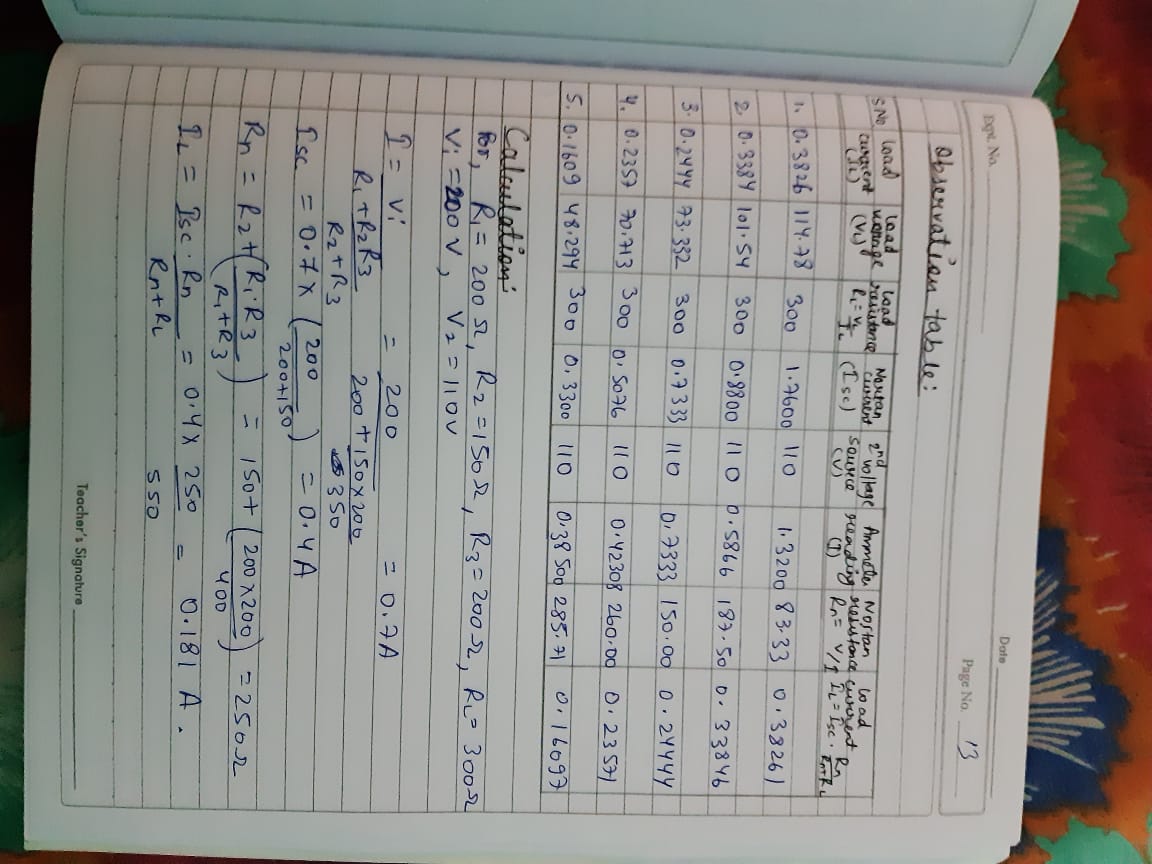 Date
Expt. No.
Page No. 13
Observation table:
S.No | Load current (IL) | Load voltage (VL) | Load resistance RL = VL/IL | Nortan current (Isc) | 2nd voltage source (V) | Ammeter reading (I) | Nortan resistance Rn = V/I | Load current IL = Isc . Rn/Rn+RL
1. 0.3826 114.78 300 1.7600 110 1.3200 83.33 0.38261
2. 0.3384 101.54 300 0.8800 110 0.5866 187.50 0.33846
3. 0.2444 73.332 300 0.7333 110 0.7333 150.00 0.24444
4. 0.2357 70.713 300 0.5076 110 0.42308 260.00 0.23571
5. 0.1609 48.294 300 0.3300 110 0.38500 285.71 0.16097
Calculation:
For, R1 = 200 Ω, R2 = 150 Ω, R3 = 200 Ω, RL = 300 Ω
Vi = 200 V, V2 = 110 V
I = Vi / R1 + R2R3 / R2 + R3 = 200 / 200 + 150 x 200 / 350 = 0.7A
Isc = 0.7 x (200 / 200+150) = 0.4 A
Rn = R2 + (R1.R3 / R1+R3) = 150 + (200 x 200 / 400) = 250 Ω
IL = Isc . Rn / Rn+RL = 0.4 x 250 / 550 = 0.181 A.
Teacher's Signature